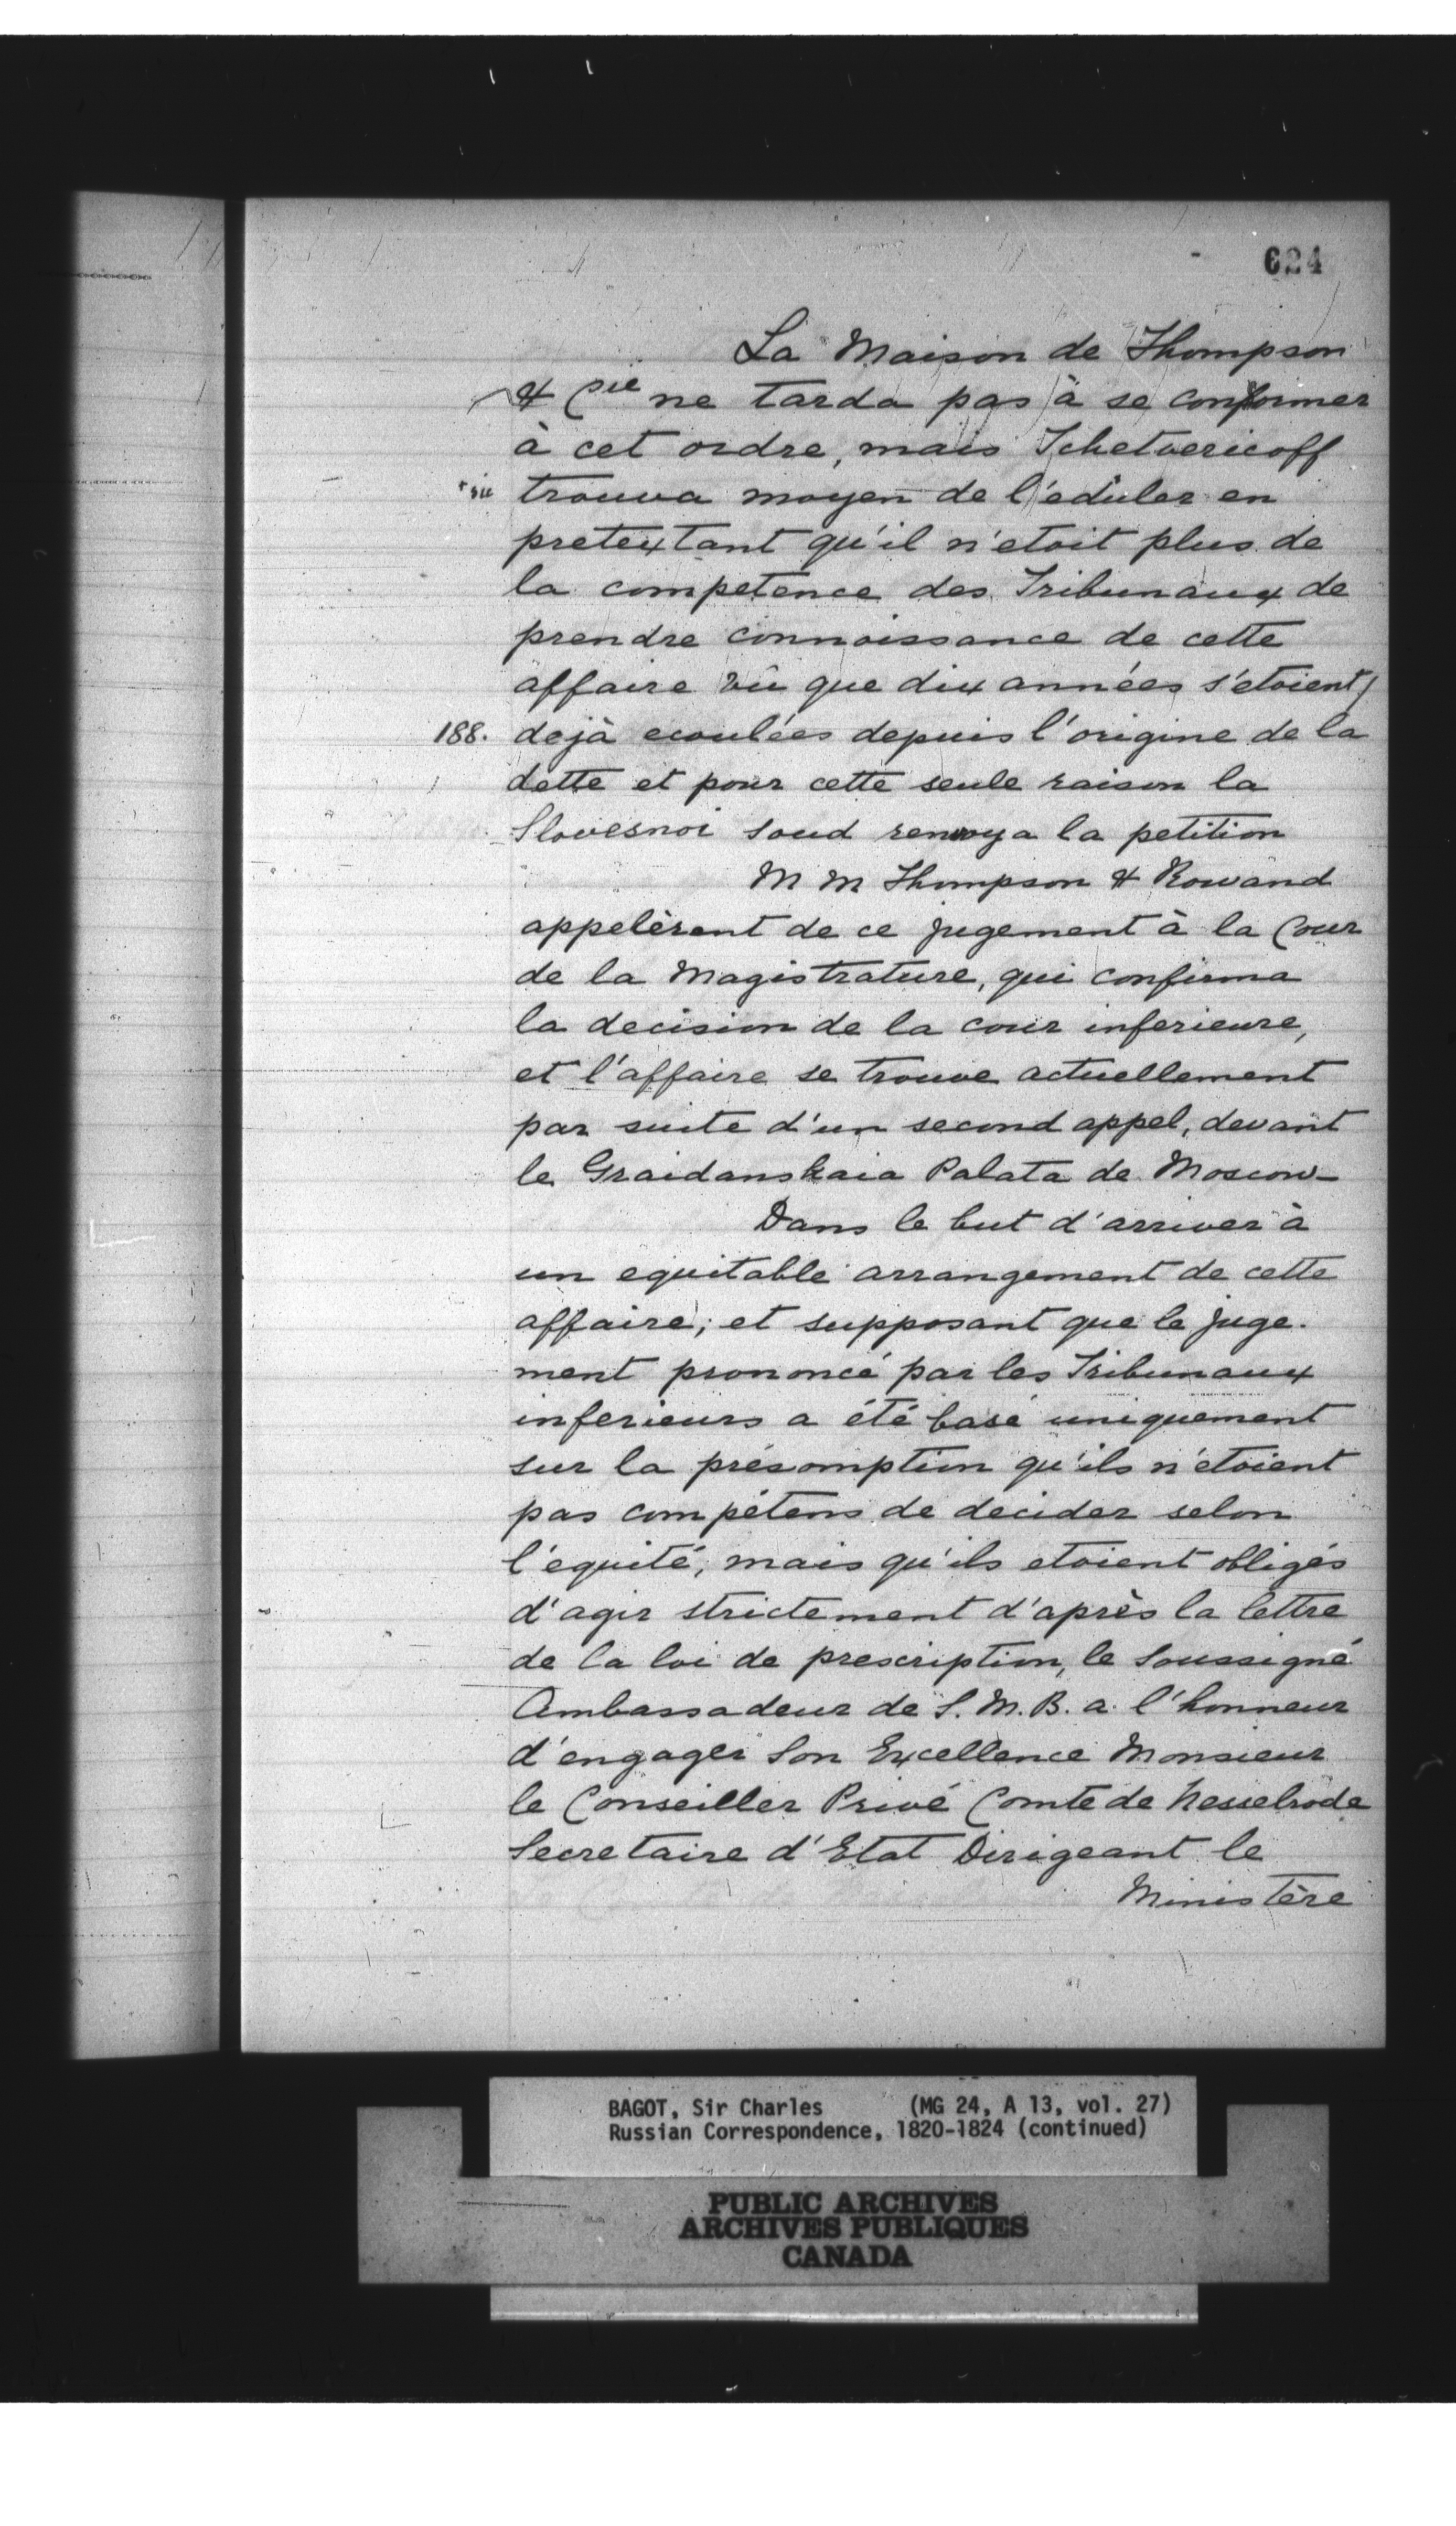 624
La Maison de Thompson
& Cie ne tarda pas à se conformer
à cet ordre, mais Tchetvericoff
+sic trouva moyen de l'eduler en
pretextant qu'il n'etoit plus de
la compétence des Tribunaux de
prendre connoissance de cette
affaire vû que dix années s'etoient
188. dejà ecoulées depuis l'origine de la
dette et pour cette seule raison la
Slovesnoi Soud renvoya la petition
M M Thompson & Rowand
appelèrent de ce jugement à la Cour
de la Magistrature, qui confirma
la decision de la cour inferieure,
et l'affaire se trouve actuellement
par suite d'un second appel, devant
le Graidanskaia Palata de Moscow-
Dans le but d'arriver à
un equitable arrangement de cette
affaire; et supposant que le juge-
ment prononcé par les Tribunaux
inferieurs a été basé uniquement
sur la présomption qu'ils n'étoient
pas compétens de decider selon
l'equité, mais qu'ils etoient obligés
d'agir strictement d'après la lettre
de la loi de prescription, le Soussigné
Ambassadeur de S. M. B. a l'honneur
d'engager Son Excellence Monsieur
le Conseiller Privé Comte de Nesselrode
Secretaire d'Etat Dirigeant le
Ministère
BAGOT, Sir Charles (MG 24, A 13, vol. 27)
Russian Correspondence, 1820-1824 (continued)
PUBLIC ARCHIVES
ARCHIVES PUBLIQUES
CANADA